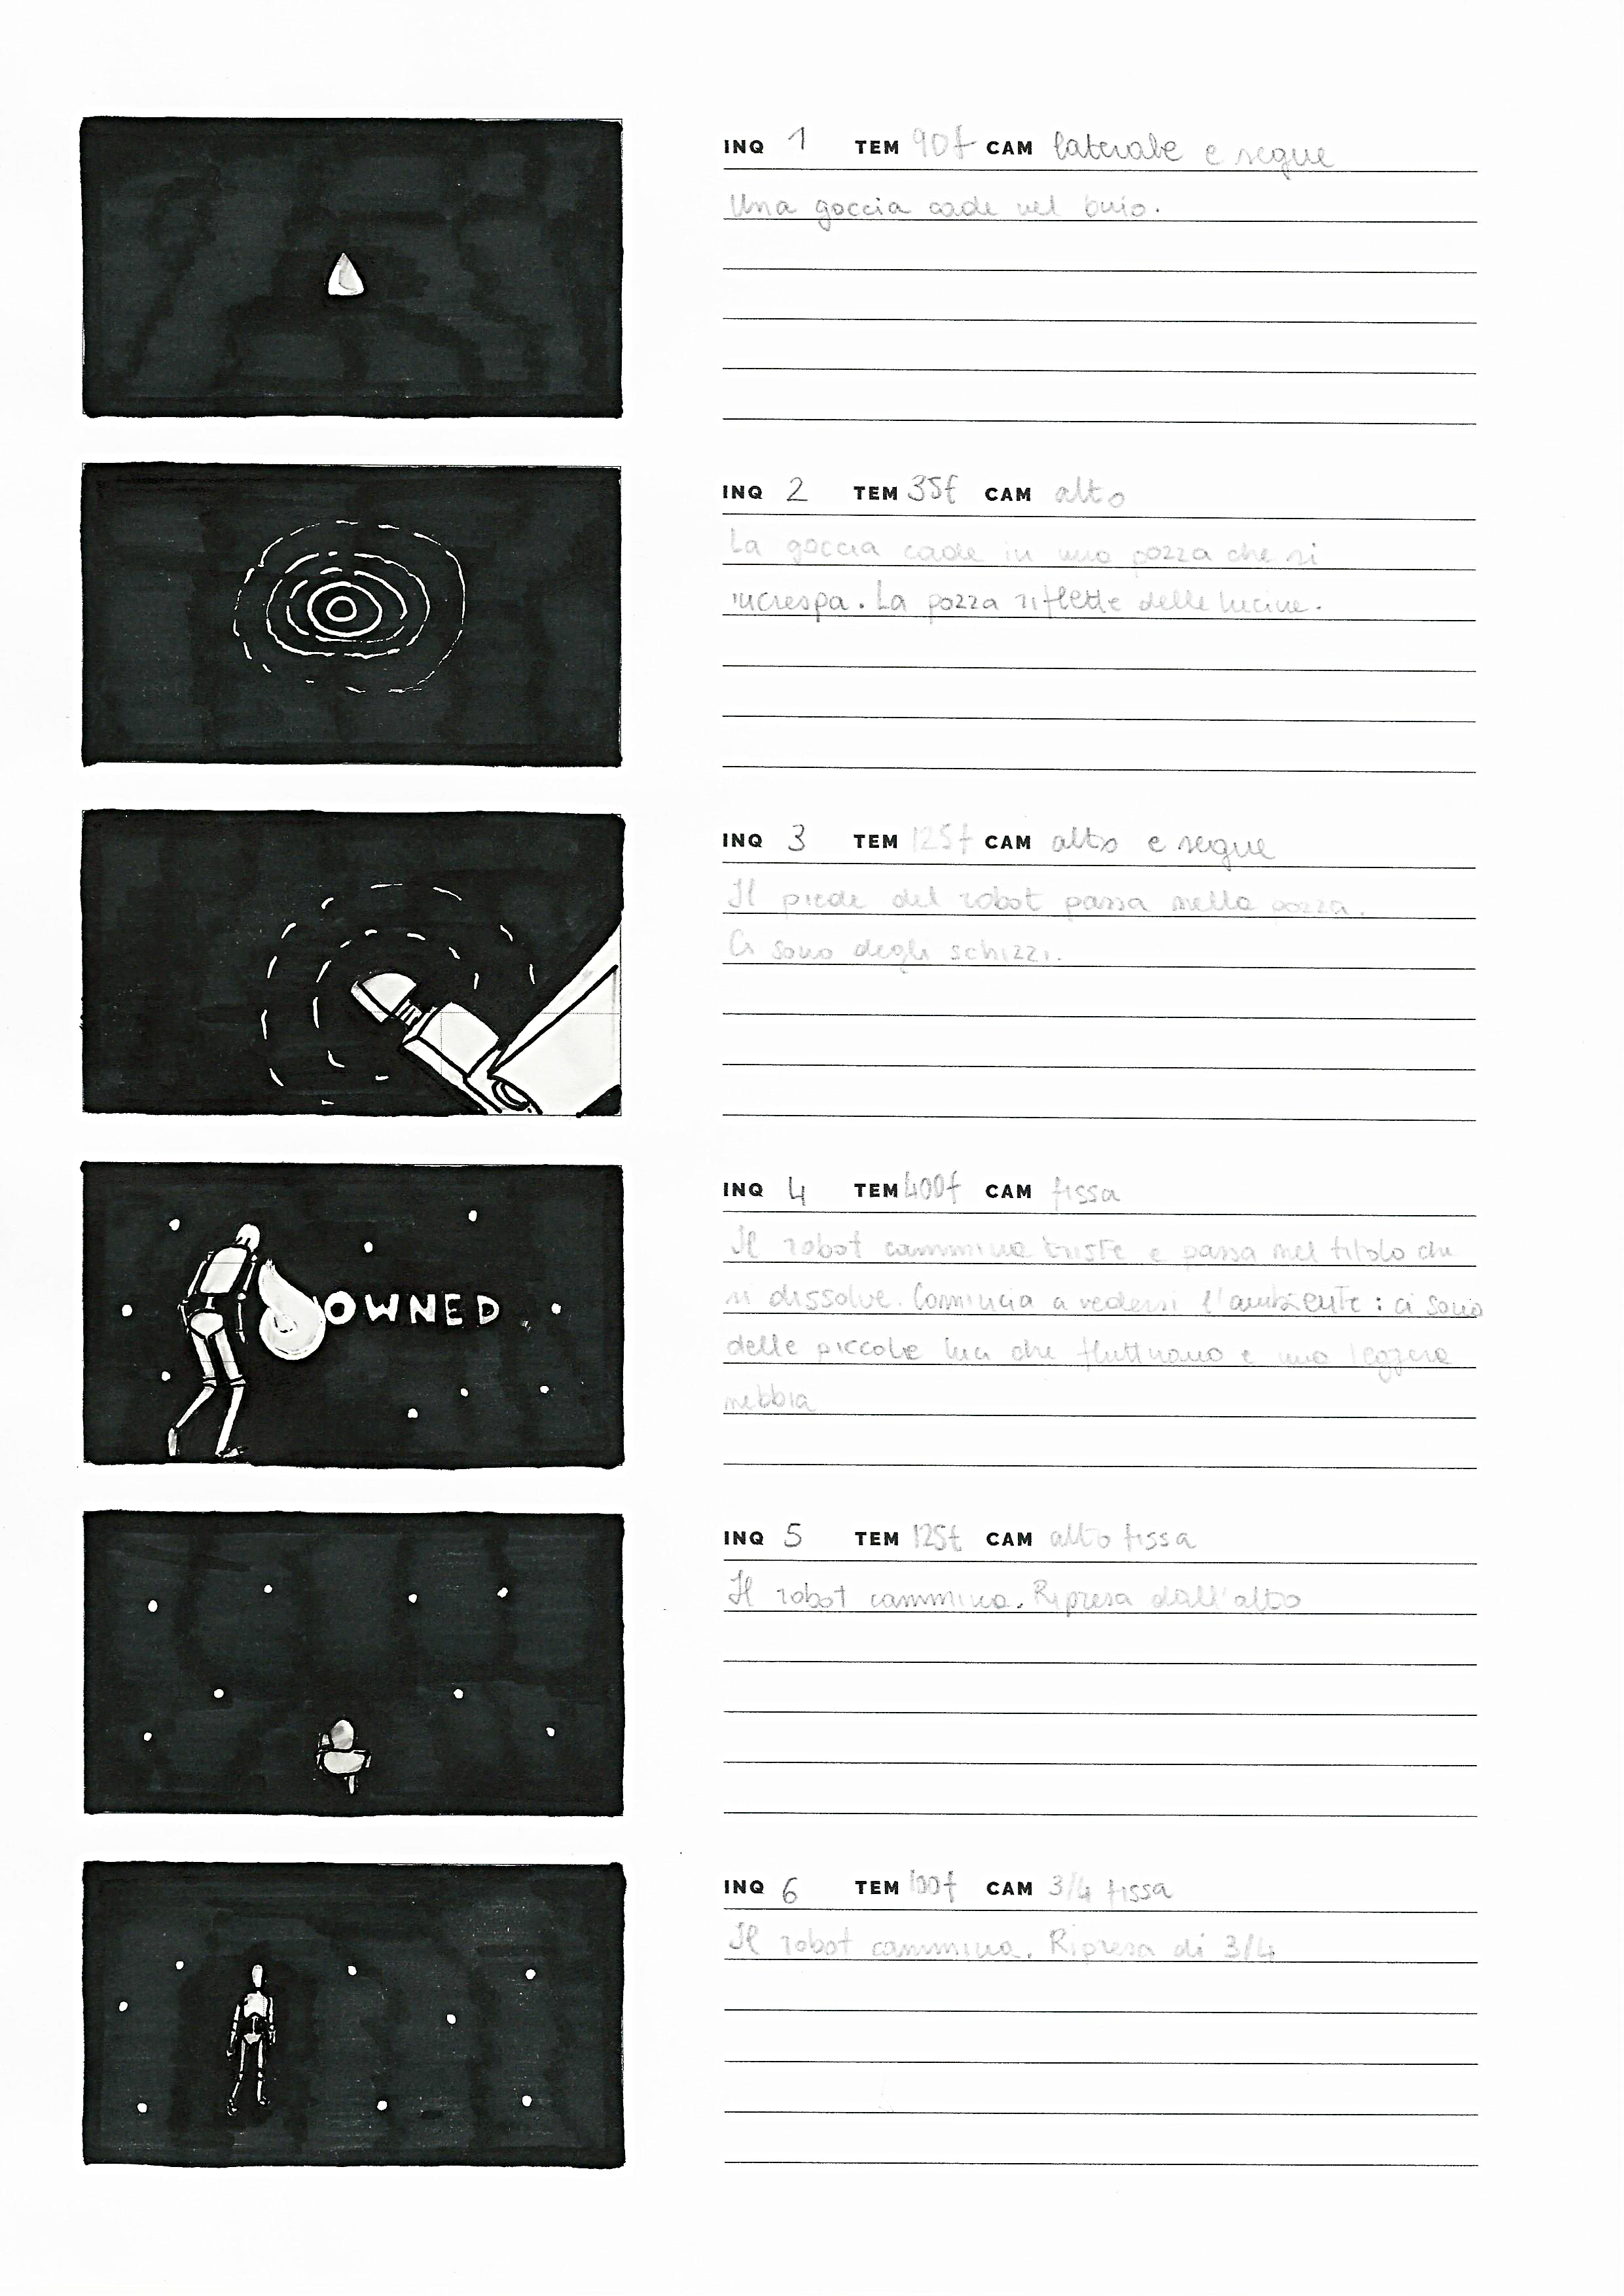 INQ 1 TEM 90f CAM laterale e segue
Una goccia cade nel buio.
INQ 2 TEM 35f CAM alto
La goccia cade in una pozza che si
increspa. La pozza riflette delle lucine.
INQ 3 TEM 125f CAM alto e segue
Il piede del robot passa nella pozza.
Ci sono degli schizzi.
OWNED
INQ 4 TEM 400f CAM fissa
Il robot cammina triste e passa nel titolo che
si dissolve. Comincia a vedersi l'ambiente: ci sono
delle piccole luci che fluttuano e una leggera
nebbia
INQ 5 TEM 125f CAM alto fissa
Il robot cammina. Ripresa dall'alto
INQ 6 TEM 100f CAM 3/4 fissa
Il robot cammina. Ripresa di 3/4